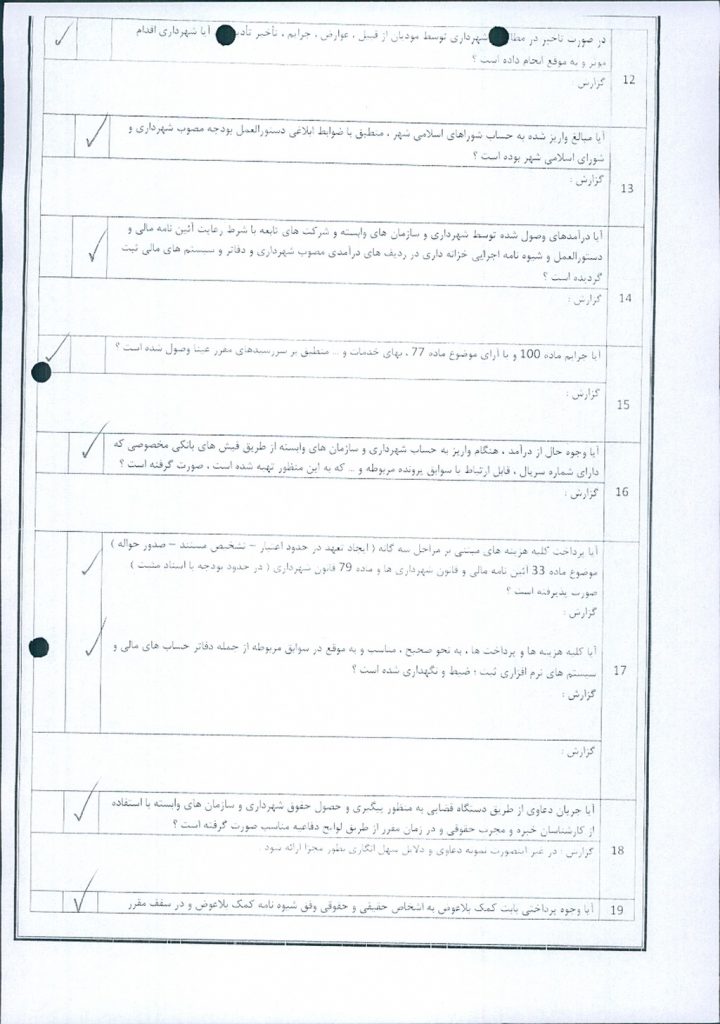 در صورت تاخیر در شهرداری توسط مودیان از قبیل ، عوارض ، جرایم ، تأخیر آیا شهرداری اقدام
موثر و به موقع انجام داده است ؟
12
گزارش
آیا مبالغ واریز شده به حساب شوراهای اسلامی شهر ، منطبق با ضوابط ابلاغی دستورالعمل بودجه مصوب شهرداری و
شورای اسلامی شهر بوده است ؟
13
گزارش :
آیا درآمدهای وصول شده توسط شهرداری و سازمان های وابسته و شرکت های تابعه با شرط رعایت آئین نامه مالی و
دستورالعمل و شیوه نامه اجرایی خزانه داری در ردیف های درآمدی مصوب شهرداری و دفاتر و سیستم های مالی ثبت
گردیده است ؟
14
گزارش :
آیا جرایم ماده 100 و یا آرای موضوع ماده 77 ، بهای خدمات و ... منطبق بر سررسیدهای مقرر عینا وصول شده است ؟
15
گزارش :
آیا وجوه حال از درآمد ، هنگام واریز به حساب شهرداری و سازمان های وابسته از طریق فیش های بانکی مخصوصی که
دارای شماره سریال ، قابل ارتباط با سوابق پرونده مربوطه و ... که به این منظور تهیه شده است ، صورت گرفته است ؟
16
گزارش :
آیا پرداخت کلیه هزینه های مبتنی بر مراحل سه گانه ( ایجاد تعهد در حدود اعتبار – تشخیص مستند – صدور حواله )
موضوع ماده 33 آئین نامه مالی و قانون شهرداری ها و ماده 79 قانون شهرداری ( در حدود بودجه با اسناد مثبت )
صورت پذیرفته است ؟
گزارش :
آیا کلیه هزینه ها و پرداخت ها ، به نحو صحیح ، مناسب و به موقع در سوابق مربوطه از جمله دفاتر حساب های مالی و
سیستم های نرم افزاری ثبت ؛ ضبط و نگهداری شده است ؟
17
گزارش :
گزارش :
آیا جریان دعاوی از طریق دستگاه قضایی به منظور پیگیری و حصول حقوق شهرداری و سازمان های وابسته با استفاده
از کارشناسان خبره و مجرب حقوقی و در زمان مقرر از طریق لوایح دفاعیه مناسب صورت گرفته است ؟
18
گزارش : در غیر اینصورت نمونه دعاوی و دلایل سهل انگاری بطور مجزا ارائه شود .
19
آیا وجوه پرداختی بابت کمک بلاعوض به اشخاص حقیقی و حقوقی وفق شیوه نامه کمک بلاعوض و در سقف مقرر